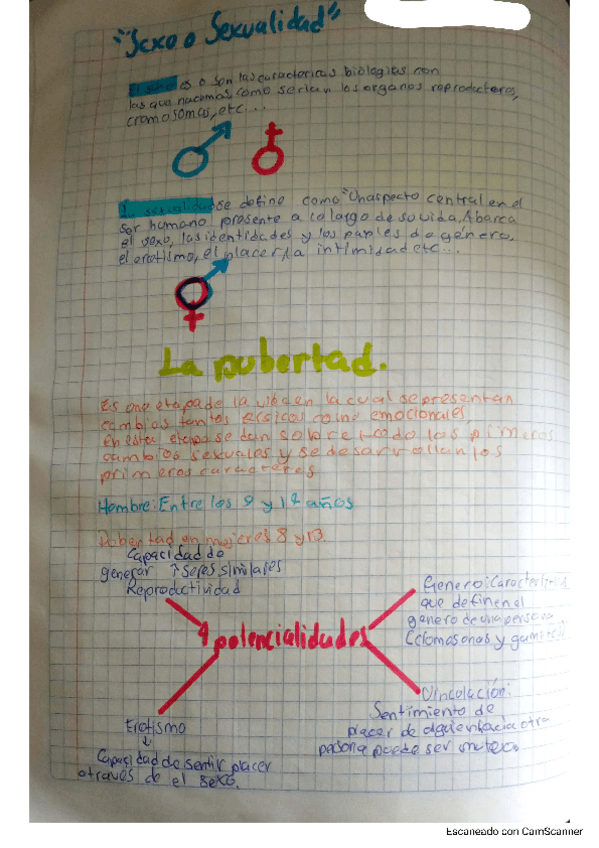 "Sexo o Sexualidad"
El sexo es o son las caracteristicas biologicas con
las que nacemos como serian los organos reproductores,
cromosomas, etc...
La sexualidad se define como "Un aspecto central en el
ser humano presente a lo largo de su vida, Abarca
el sexo, las identidades y los papeles de genero,
el erotismo, el placer, la intimidad etc...
La pubertad.
Es una etapa de la vida en la cual se presentan
cambios tantos fisicos como emocionales,
en esta etapa se dan sobre todo los primeros
cambios sexuales y se desarrollan los
primeros caracteres
Hombre: Entre los 9 y años
Pubertad en mujeres 8 y 13.
Capacidad de
generar ↑ seres similares
Reproductividad
Genero: Caracteristicas
que definen el
genero de una persona
4 potencialidades
Vinculación:
Sentimiento de
placer de alguien hacia otra
persona puede ser
Erotismo
↓
Capacidad de sentir placer
a través de el sexo.
Escaneado con CamScanner